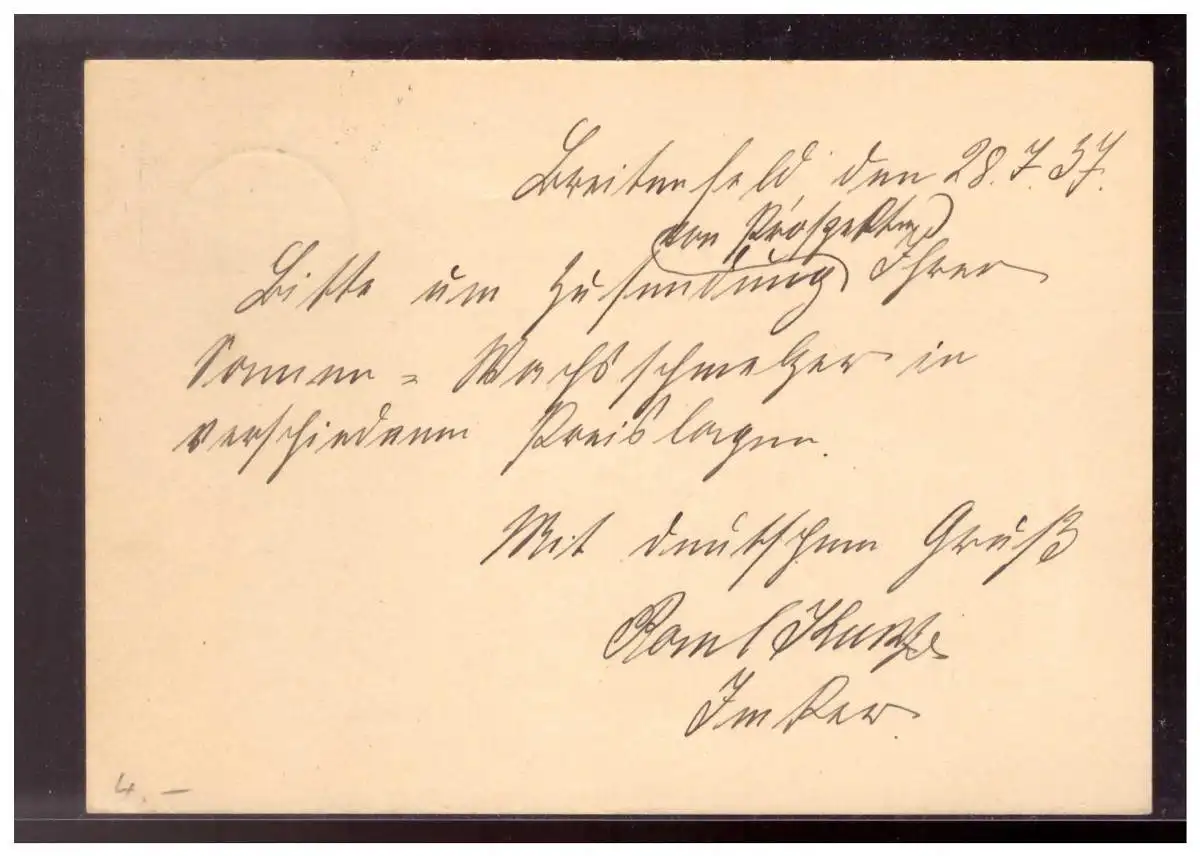 Breitenfeld den 28.7.37.
von Prospekten
Bitte um Zusendung Ihrer
Sonnen = Wachsschmelzer in
verschiedenen Preislagen.
Mit deutschem Gruß
Imker
4. –